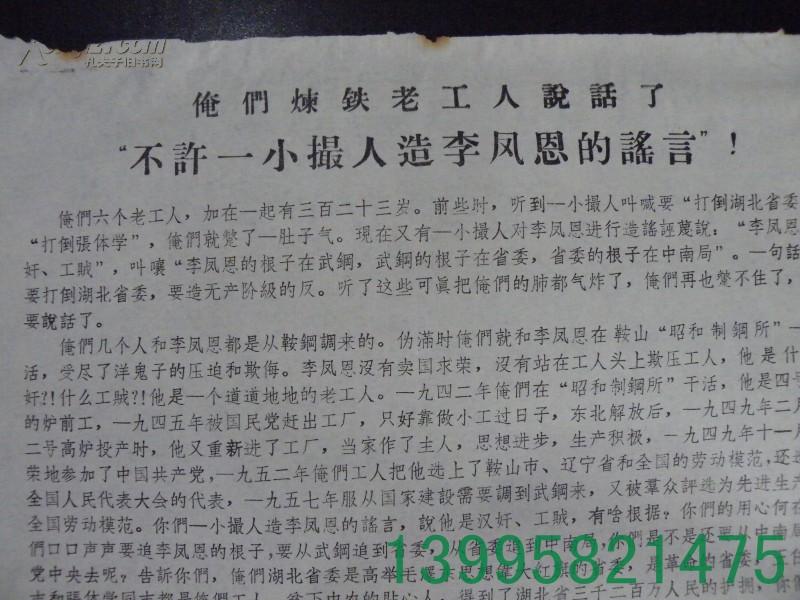 孔夫子旧书网
俺們煉鉄老工人說話了
“不許一小撮人造李凤恩的謠言”！
俺們六个老工人，加在一起有三百二十三岁。前些时，听到一小撮人叫喊要“打倒湖北省委
“打倒張体学”，俺們就蹩了一肚子气。現在又有一小撮人对李凤恩进行造謠誣蔑說：“李凤恩
奸、工賊”，叫嚷“李凤恩的根子在武鋼，武鋼的根子在省委，省委的根子在中南局”。一句話
要打倒湖北省委，要造无产阶級的反。听了这些可眞把俺們的肺都气炸了，俺們再也蹩不住了，
要說話了。
俺們几个人和李凤恩都是从鞍鋼調来的。伪滿时俺們就和李凤恩在鞍山“昭和制鋼所”一
活，受尽了洋鬼子的压迫和欺侮。李凤恩沒有卖国求荣，沒有站在工人头上欺压工人，他是什
奸？!什么工賊？!他是一个道道地地的老工人。一九四二年俺們在“昭和制鋼所”干活，他是四号
的炉前工，一九四五年被国民党赶出工厂，只好靠做小工过日子，东北解放后，一九四九年二月
二号高炉投产时，他又重新进了工厂，当家作了主人，思想进步，生产积极，一九四九年十一月
荣地参加了中国共产党，一九五二年俺們工人把他选上了鞍山市、辽宁省和全国的劳动模范，还选
全国人民代表大会的代表，一九五七年服从国家建設需要調到武鋼来，又被羣众評选为先进生产
全国劳动模范。你們一小撮人造李凤恩的謠言，說他是汉奸、工賊，有啥根据？你們的用心何在
們口口声声要追李凤恩的根子，要从武鋼追到省委，从省委追到中南局，你們是不是还要从中南局
党中央去呢？告訴你們，俺們湖北省委是高举毛泽东思想伟大红旗的省委，是革命的省委，
志和張体学同志都是俺們工人、貧下中农的貼心人，得到了湖北省三千二百万人民的护拥，你們
13905821475